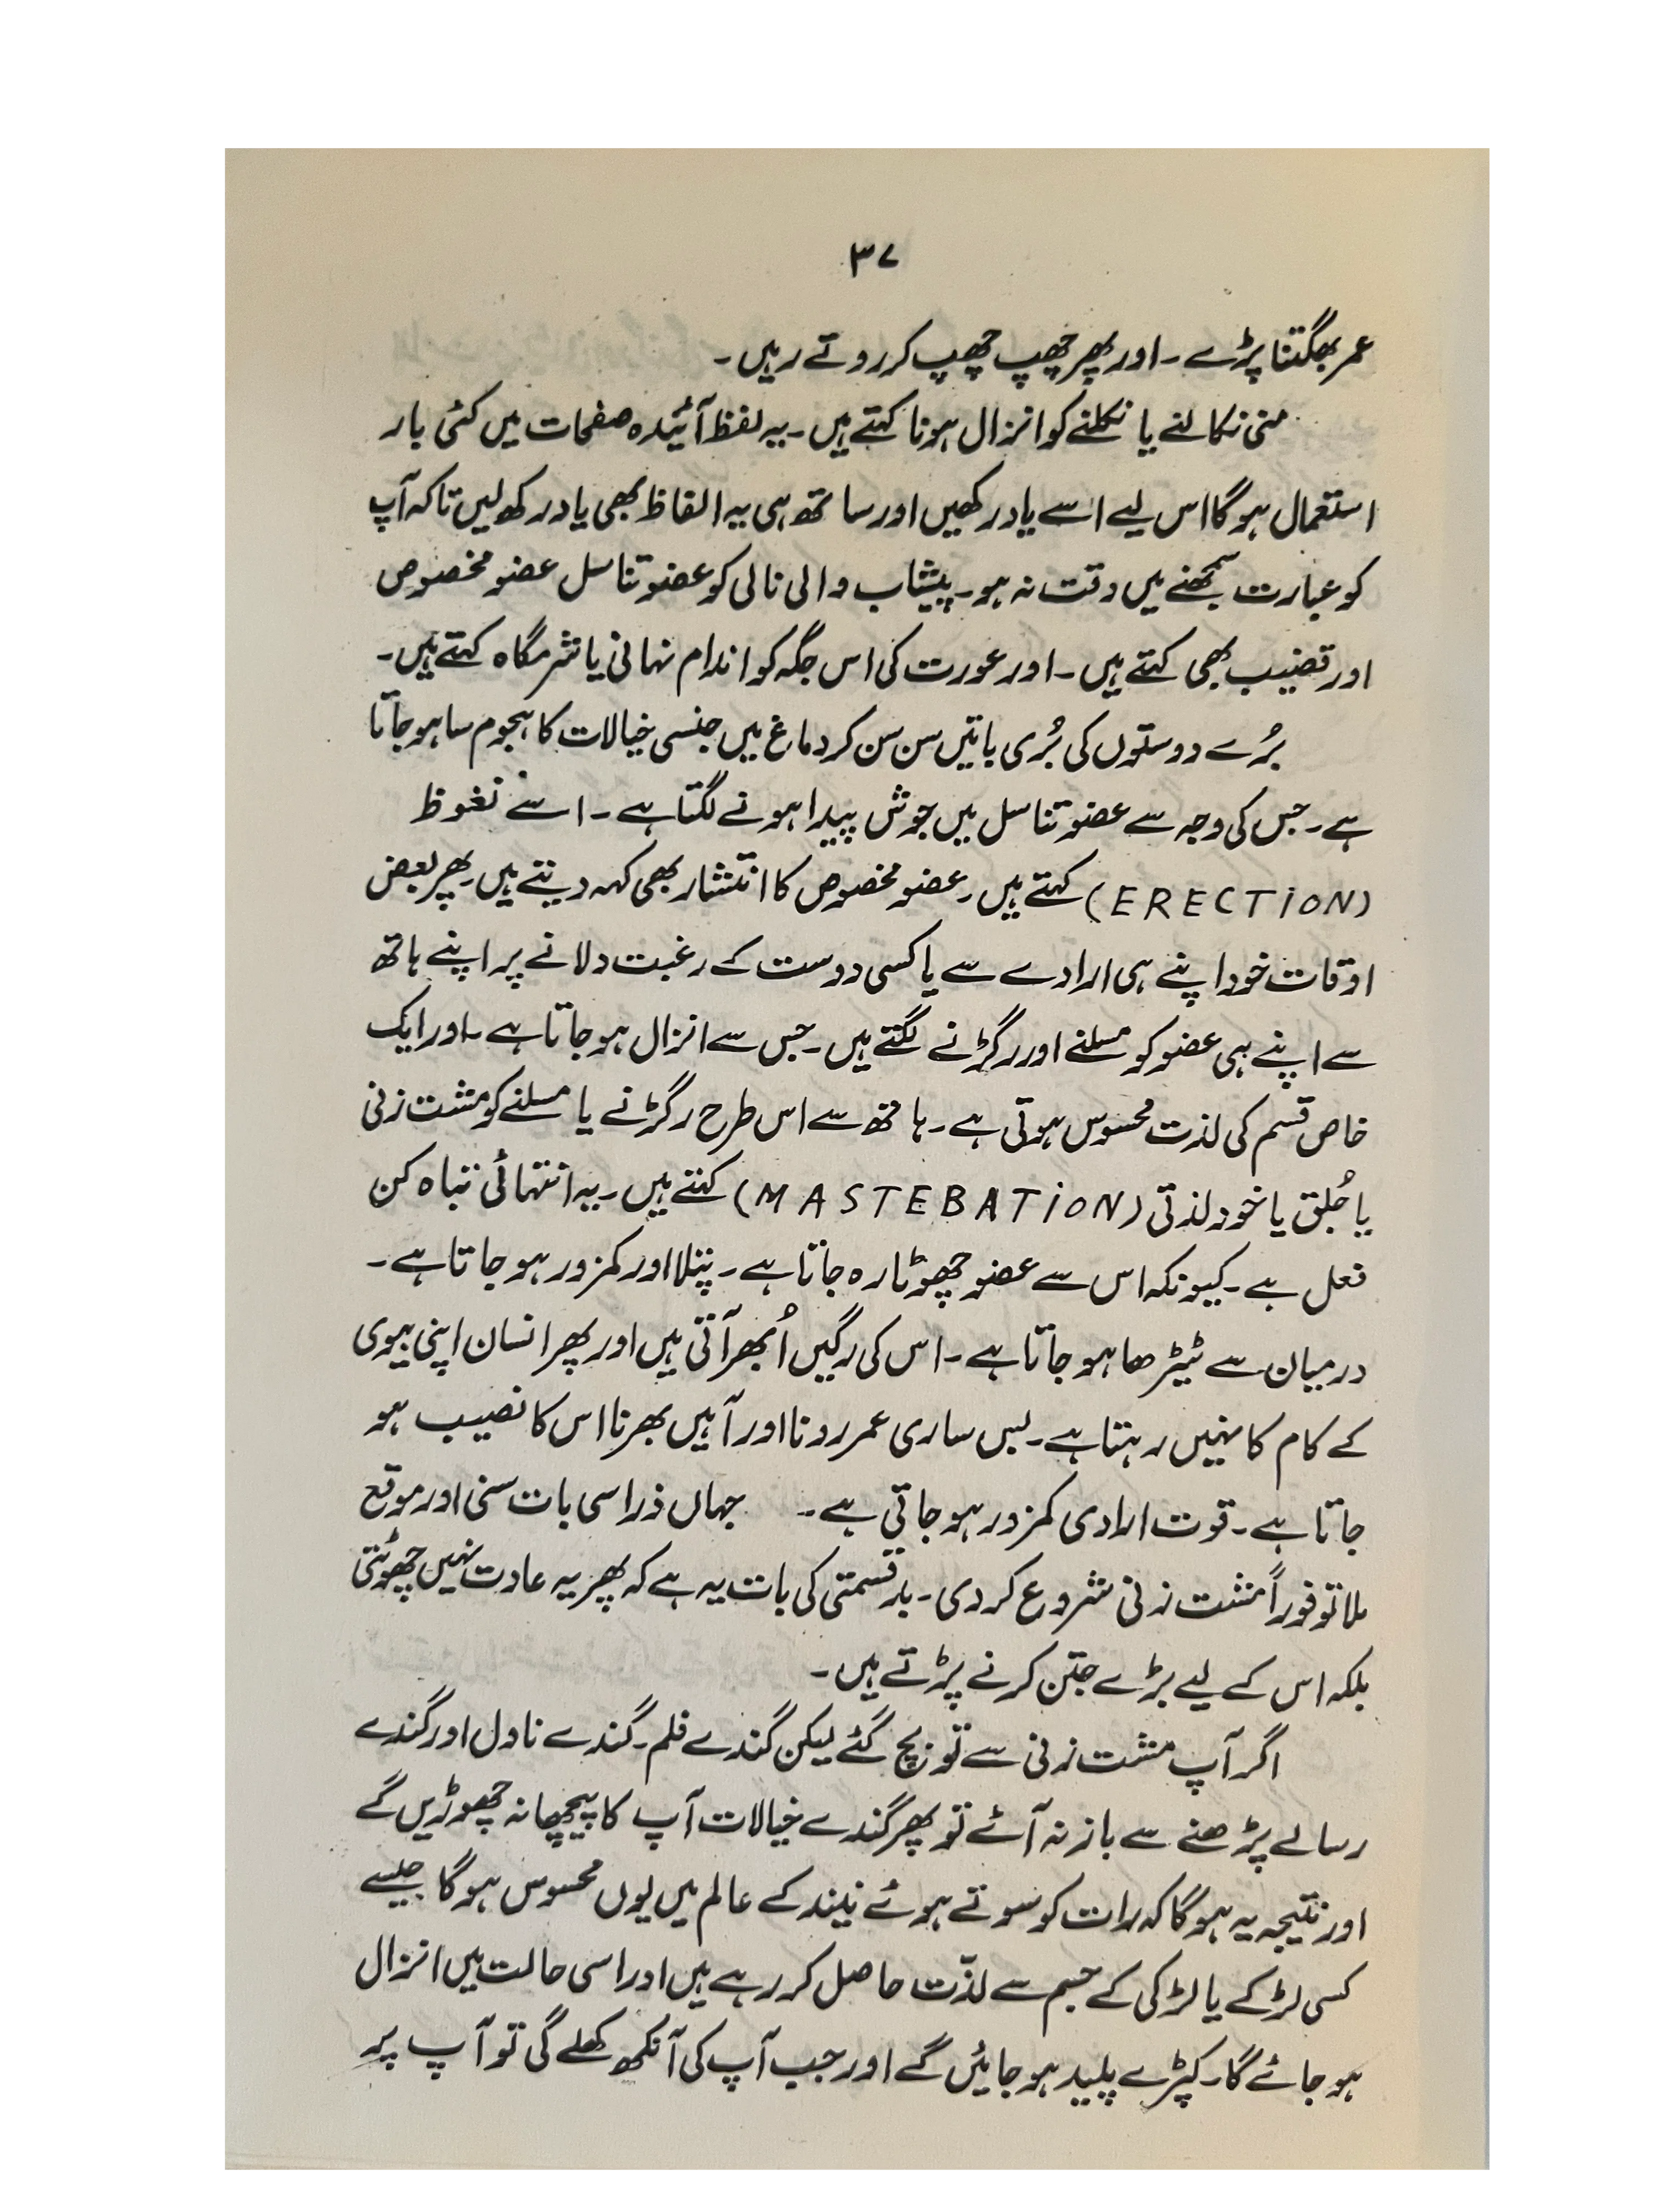 ۳۷
عمر بھگتنا پڑے۔ اور پھر چھپ چھپ کر روتے رہیں۔
منی نکالنے یا نکلنے کو انزال ہونا کہتے ہیں۔ یہ لفظ آئیندہ صفحات میں کئی بار
استعمال ہوگا اس لیے اسے یاد رکھیں اور ساتھ ہی یہ الفاظ بھی یاد رکھ لیں تاکہ آپ
کو عبارت سمجھنے میں دقت نہ ہو۔ پیشاب والی نالی کو عضو تناسل عضو مخصوص
اور قضیب بھی کہتے ہیں۔ اور عورت کی اس جگہ کو اندام نہانی یا شرمگاہ کہتے ہیں۔
بُرے دوستوں کی بُری باتیں سن سن کر دماغ میں جنسی خیالات کا ہجوم سا ہو جاتا
ہے۔ جس کی وجہ سے عضو تناسل میں جوش پیدا ہونے لگتا ہے۔ اسے نغوظ
(ERECTiON) کہتے ہیں۔ عضو مخصوص کا انتشار بھی کہہ دیتے ہیں۔ پھر بعض
اوقات خود اپنے ہی ارادے سے یا کسی دوست کے رغبت دلانے پر اپنے ہاتھ
سے اپنے ہی عضو کو مسلنے اور رگڑنے لگتے ہیں۔ جس سے انزال ہو جاتا ہے۔ اور ایک
خاص قسم کی لذت محسوس ہوتی ہے۔ ہاتھ سے اس طرح رگڑنے یا مسلنے کو مشت زنی
یا جُلق یا خود لذتی (MASTEBATiON) کہتے ہیں۔ یہ انتہائی تباہ کن
فعل ہے۔ کیونکہ اس سے عضو چھوٹا رہ جاتا ہے۔ پتلا اور کمزور ہو جاتا ہے۔
درمیان سے ٹیڑھا ہو جاتا ہے۔ اس کی رگیں اُبھر آتی ہیں اور پھر انسان اپنی بیوی
کے کام کا نہیں رہتا ہے۔ بس ساری عمر رونا اور آہیں بھرنا اس کا نصیب ہو
جاتا ہے۔ قوت ارادی کمزور ہو جاتی ہے۔ جہاں ذرا سی بات سنی اور موقع
ملا تو فوراً مشت زنی شروع کر دی۔ بدقسمتی کی بات یہ ہے کہ پھر یہ عادت نہیں چھوٹتی
بلکہ اس کے لیے بڑے جتن کرنے پڑتے ہیں۔
اگر آپ مشت زنی سے تو بچ گئے لیکن گندے فلم۔ گندے ناول اور گندے
رسالے پڑھنے سے باز نہ آئے تو پھر گندے خیالات آپ کا پیچھا نہ چھوڑیں گے
اور نتیجہ یہ ہوگا کہ رات کو سوتے ہوئے نیند کے عالم میں یوں محسوس ہوگا جیسے
کسی لڑکے یا لڑکی کے جسم سے لذّت حاصل کر رہے ہیں اور اسی حالت میں انزال
ہو جائے گا۔ کپڑے پلید ہو جائیں گے اور جب آپ کی آنکھ کھلے گی تو آپ پر